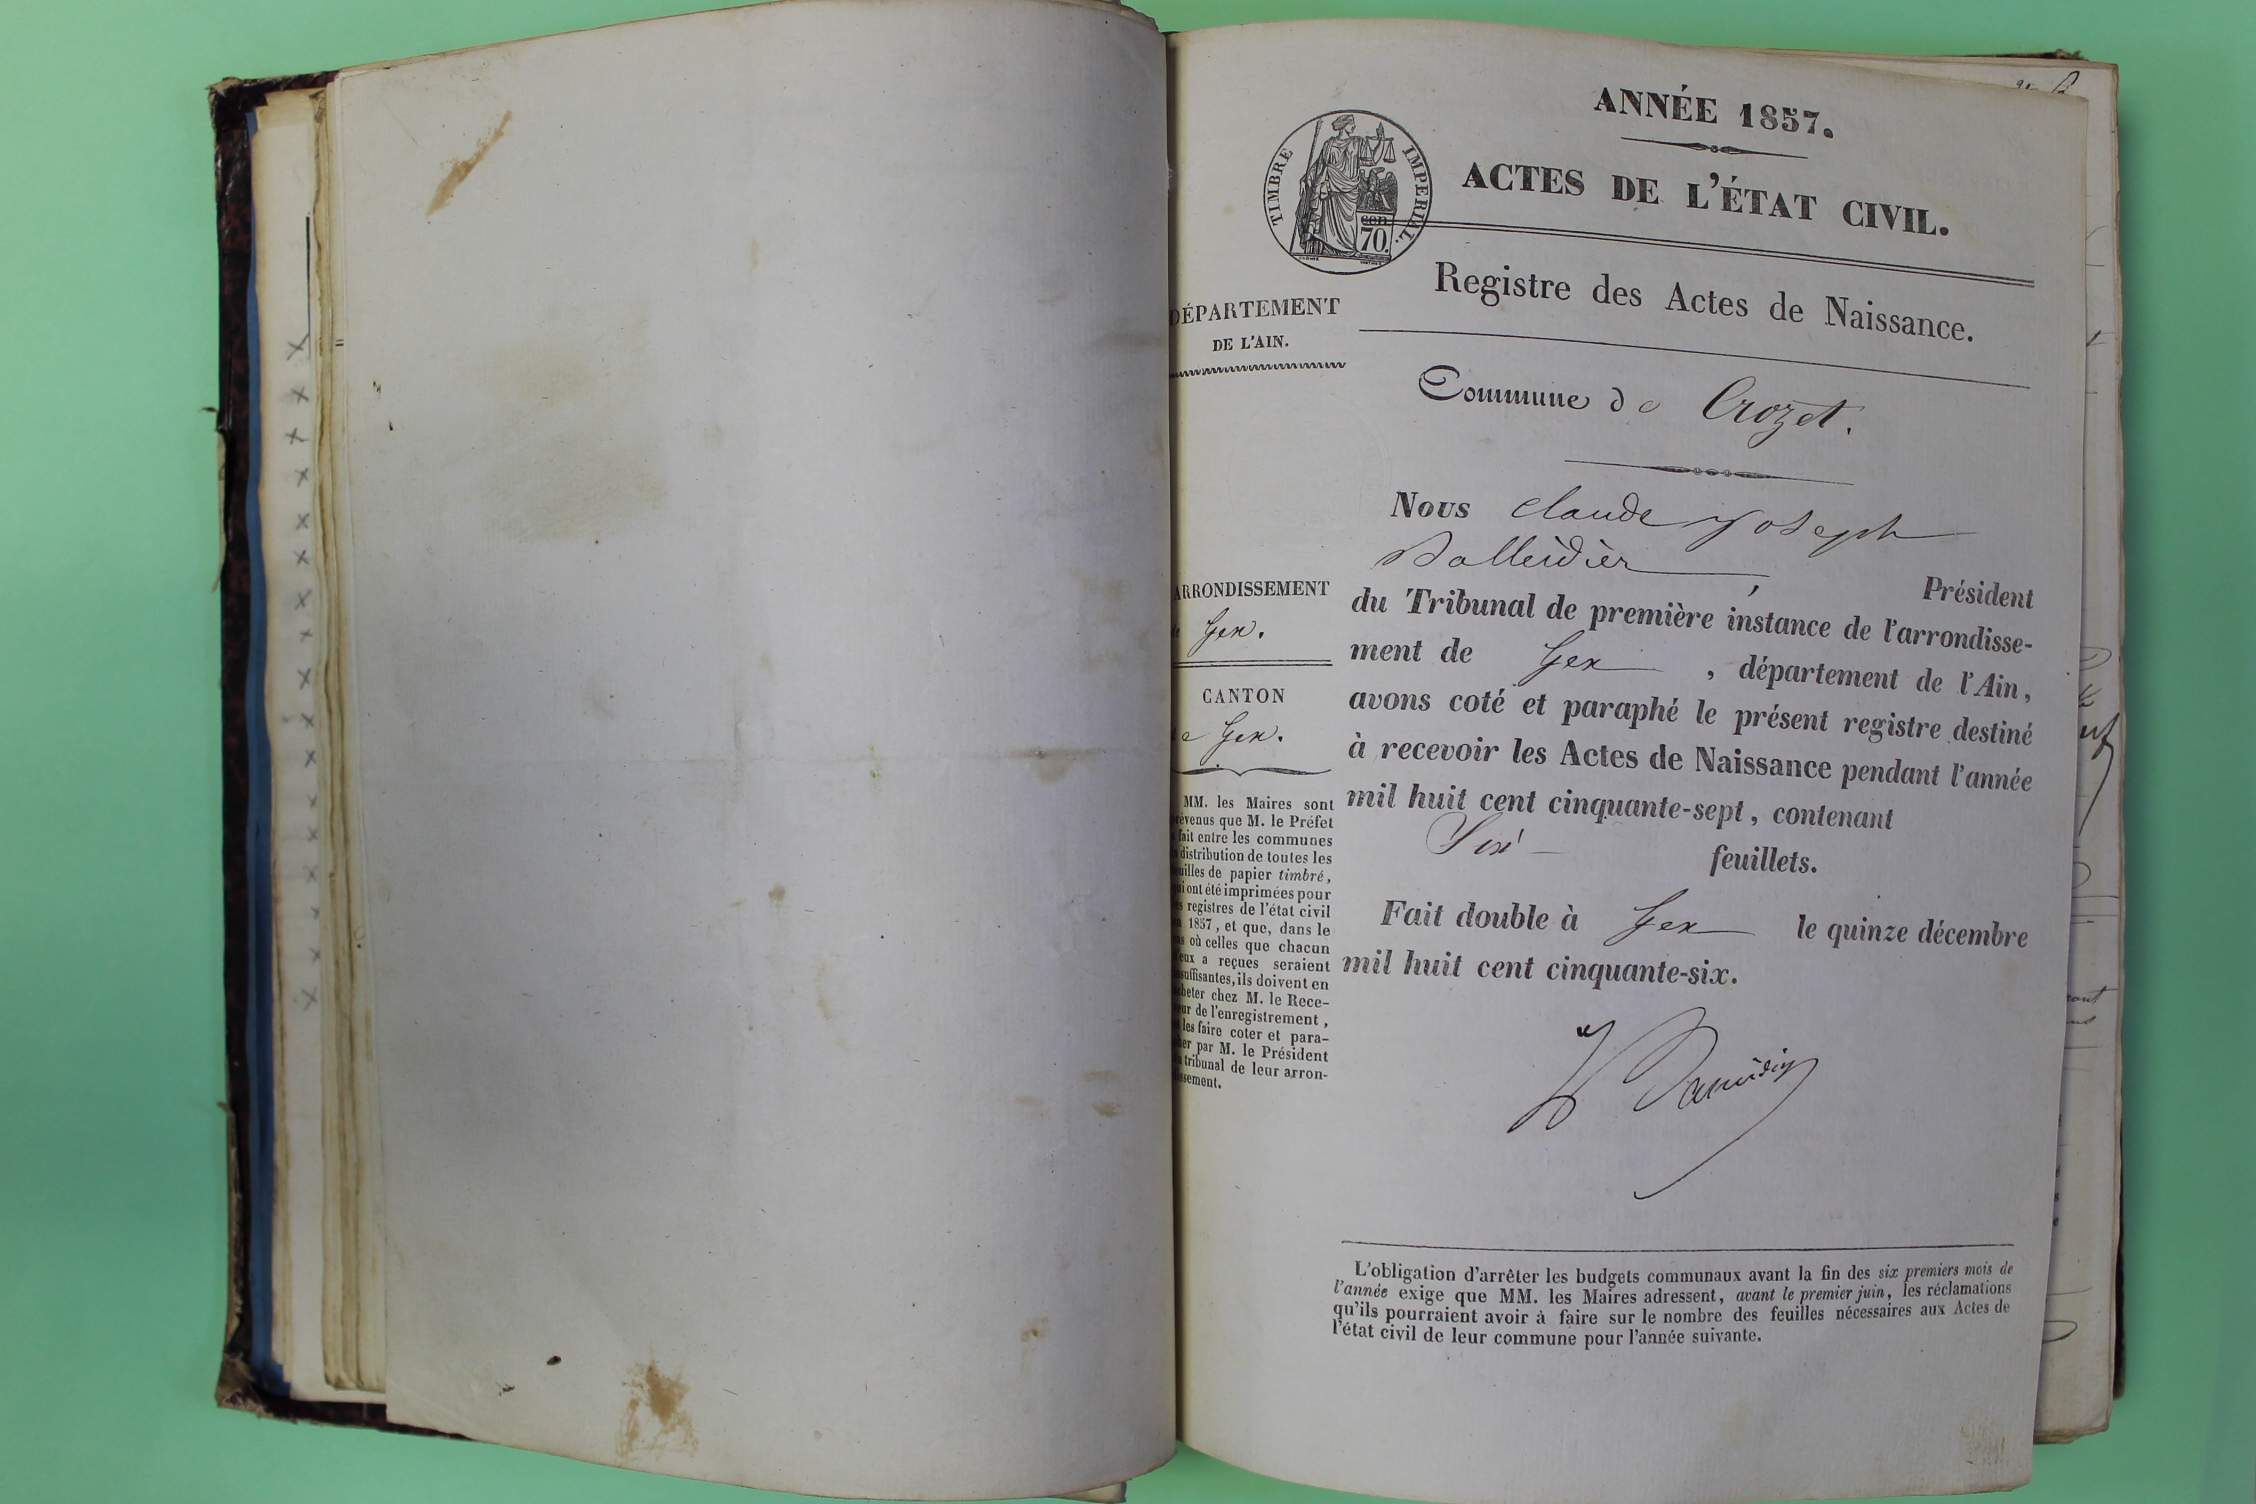 ANNÉE 1857.
ACTES DE L'ÉTAT CIVIL.
TIMBRE IMPERIAL.
cen
70.
Registre des Actes de Naissance.
DÉPARTEMENT
DE L'AIN.
Commune de Crozet.
ARRONDISSEMENT
de Gex.
CANTON
de Gex.
MM. les Maires sont
prévenus que M. le Préfet
a fait entre les communes
la distribution de toutes les
feuilles de papier timbré,
qui ont été imprimées pour
les registres de l'état civil
en 1857, et que, dans le
cas où celles que chacun
d'eux a reçues seraient
insuffisantes, ils doivent en
acheter chez M. le Rece-
veur de l'enregistrement,
et les faire coter et para-
pher par M. le Président
du tribunal de leur arron-
dissement.
Nous Claude Joseph
, Président
du Tribunal de première instance de l'arrondisse-
ment de Gex , département de l'Ain,
avons coté et paraphé le présent registre destiné
à recevoir les Actes de Naissance pendant l'année
mil huit cent cinquante-sept, contenant
Six feuillets.
Fait double à Gex le quinze décembre
mil huit cent cinquante-six.
L'obligation d'arrêter les budgets communaux avant la fin des six premiers mois de
l'année exige que MM. les Maires adressent, avant le premier juin, les réclamations
qu'ils pourraient avoir à faire sur le nombre des feuilles nécessaires aux Actes de
l'état civil de leur commune pour l'année suivante.